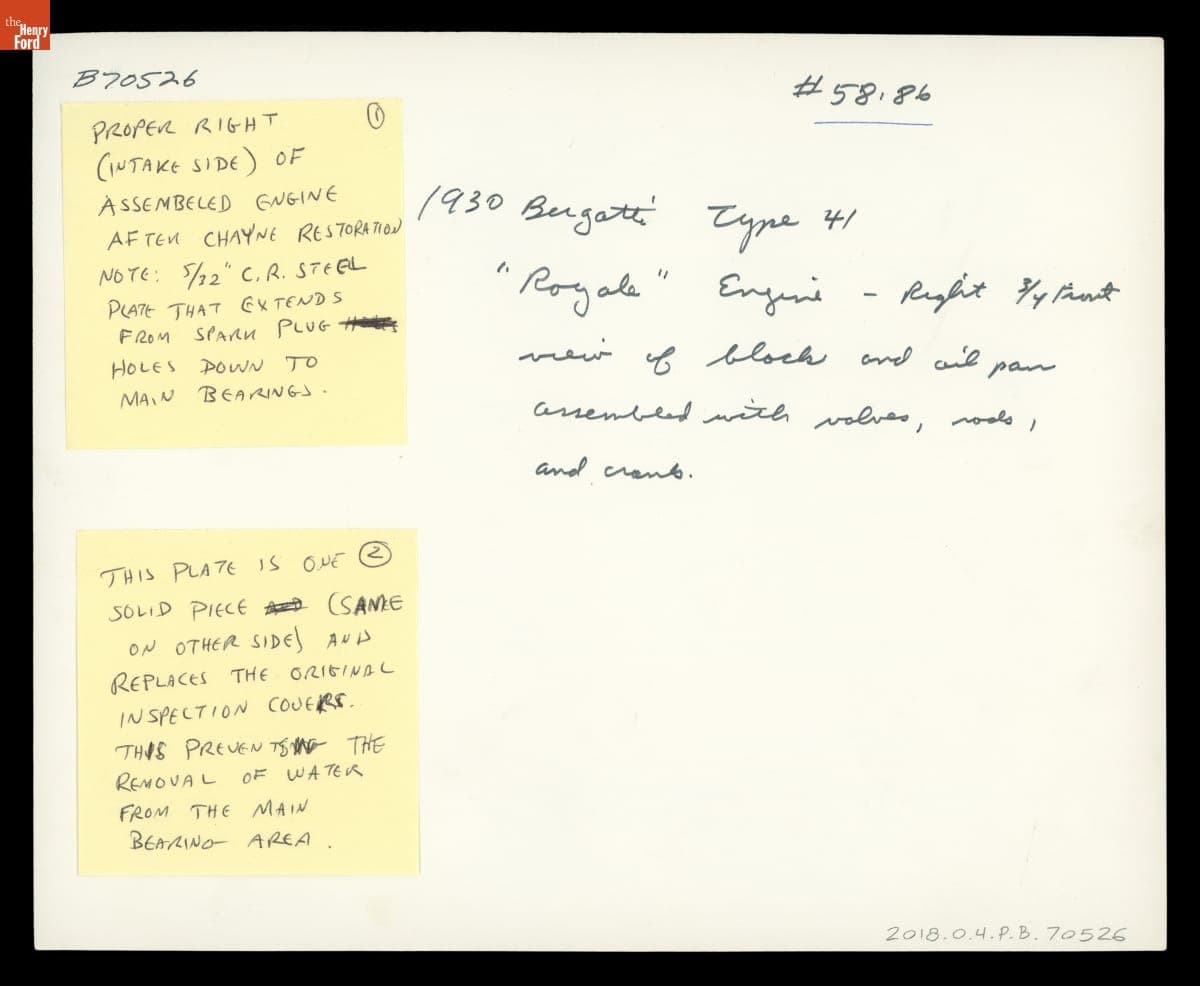 the
Henry
Ford
B70526
#58.86
①
PROPER RIGHT
(INTAKE SIDE) OF
ASSEMBELED ENGINE
AFTER CHAYNE RESTORATION
NOTE: 5/32" C.R. STEEL
PLATE THAT EXTENDS
FROM SPARK PLUG
HOLES DOWN TO
MAIN BEARINGS.
1930 Bugatti Type 41
"Royale" Engine - Right 3/4 Front
view of block and oil pan
assembled with valves, rods,
and crank.
THIS PLATE IS ONE ②
SOLID PIECE (SAME
ON OTHER SIDE) AND
REPLACES THE ORIGINAL
INSPECTION COVERS.
THIS PREVENTS THE
REMOVAL OF WATER
FROM THE MAIN
BEARING AREA.
2018.0.4.P.B.70526